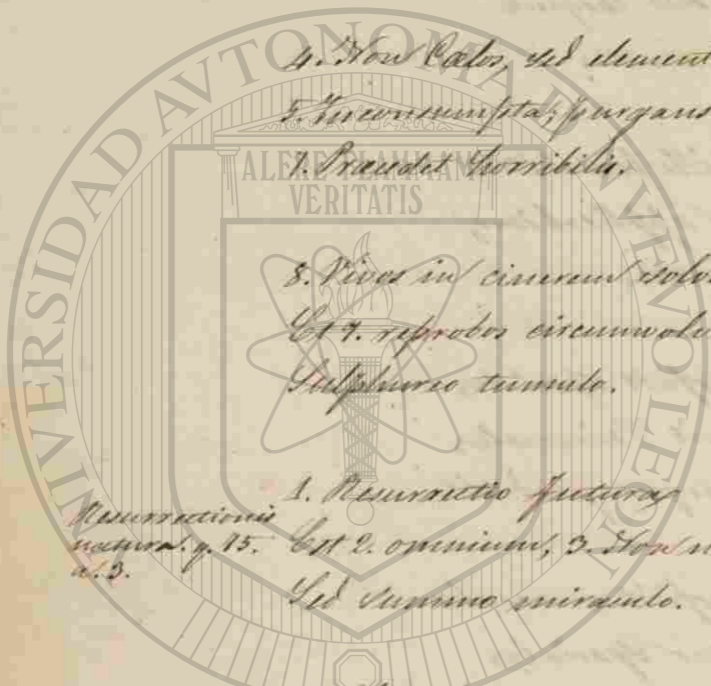 4. Non Cælos, sed element
5. Inconsumpta; purgans
7. Praecedit horribilis.
8. Vivos in cinerem solv
Et 9. reprobos circumvolv
Sulphureo tumulo.
1. Resurrectio futura
Resurrectionis
natura. q. 75.
a. 3.
Est 2. omnium, 3. Non n
Sed summo miraculo.
UNIVERSIDAD AUTONOMA DE NUEVO LEON
ALERE FLAMMAM
VERITATIS